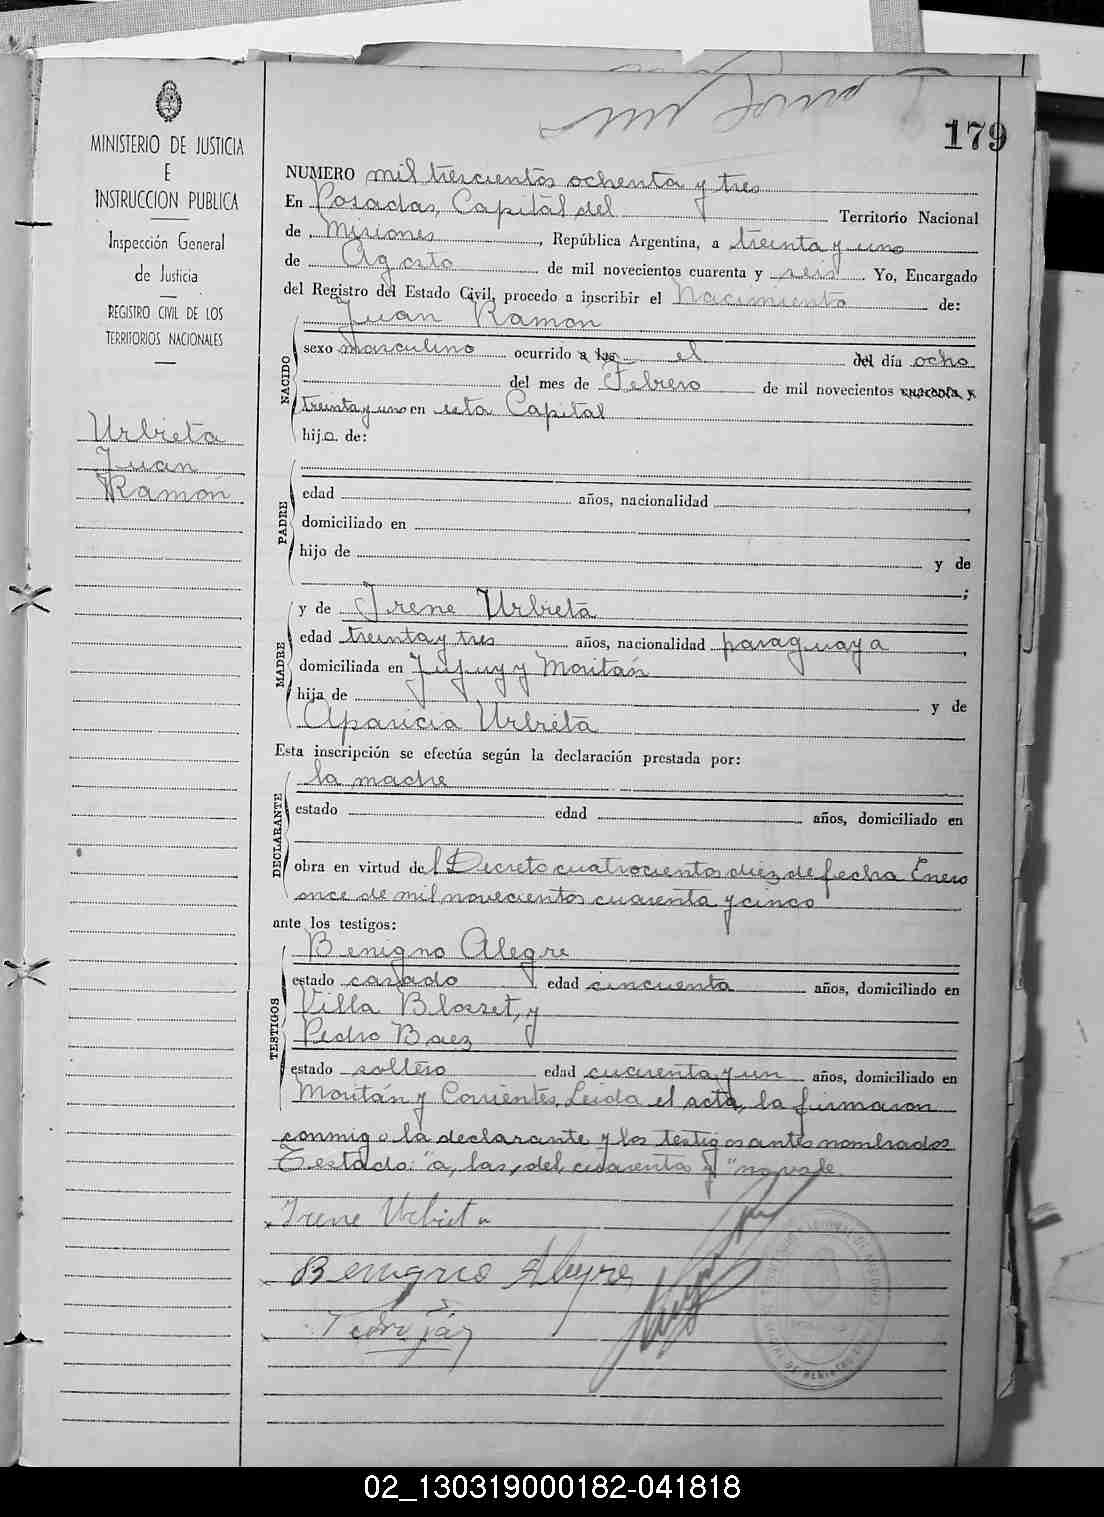 179
MINISTERIO DE JUSTICIA
E
INSTRUCCION PUBLICA
Inspección General
de Justicia
REGISTRO CIVIL DE LOS
TERRITORIOS NACIONALES
Urbieta
Juan
Ramón
NUMERO mil trescientos ochenta y tres
En Posadas, Capital del Territorio Nacional
de Misiones, República Argentina, a treinta y uno
de Agosto de mil novecientos cuarenta y seis Yo, Encargado
del Registro del Estado Civil, procedo a inscribir el Nacimiento de:
Juan Ramon
NACIDO
sexo masculino ocurrido a las el del día ocho
del mes de Febrero de mil novecientos cuarenta y
treinta y uno en esta Capital
hijo de:
PADRE
edad años, nacionalidad ,
domiciliado en
hijo de y de
;
MADRE
y de Irene Urbieta
edad treinta y tres años, nacionalidad paraguaya ,
domiciliada en Jujuy y Moritán
hija de y de
Aparicia Urbieta
Esta inscripción se efectúa según la declaración prestada por:
DECLARANTE
la madre
estado edad años, domiciliado en
obra en virtud del Decreto cuatrocientos diez de fecha Enero
once de mil novecientos cuarenta y cinco
ante los testigos:
TESTIGOS
Benigno Alegre
estado casado edad cincuenta años, domiciliado en
Villa Blosset, y
Pedro Baez
estado soltero edad cuarenta y un años, domiciliado en
Moritán y Corrientes. Leida el acta, la firmaron
conmigo la declarante y los testigos antes nombrados
Testado: "a, las, del, cuarenta y" no vale
Irene Urbieta
Benigno Alegre
02_130319000182-041818